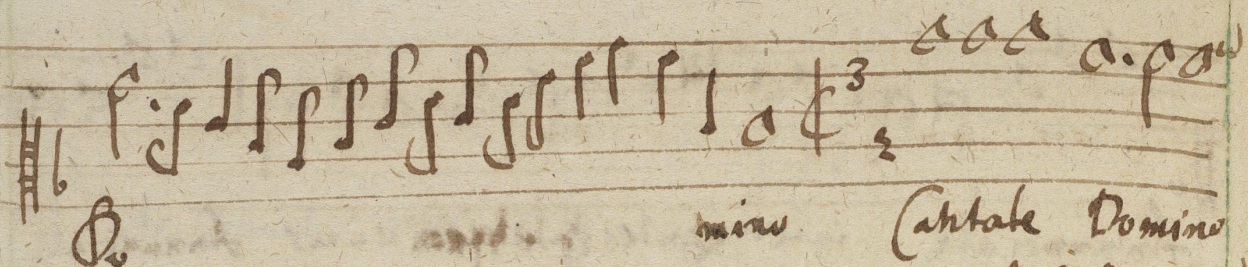 Do mino Cantate Domino